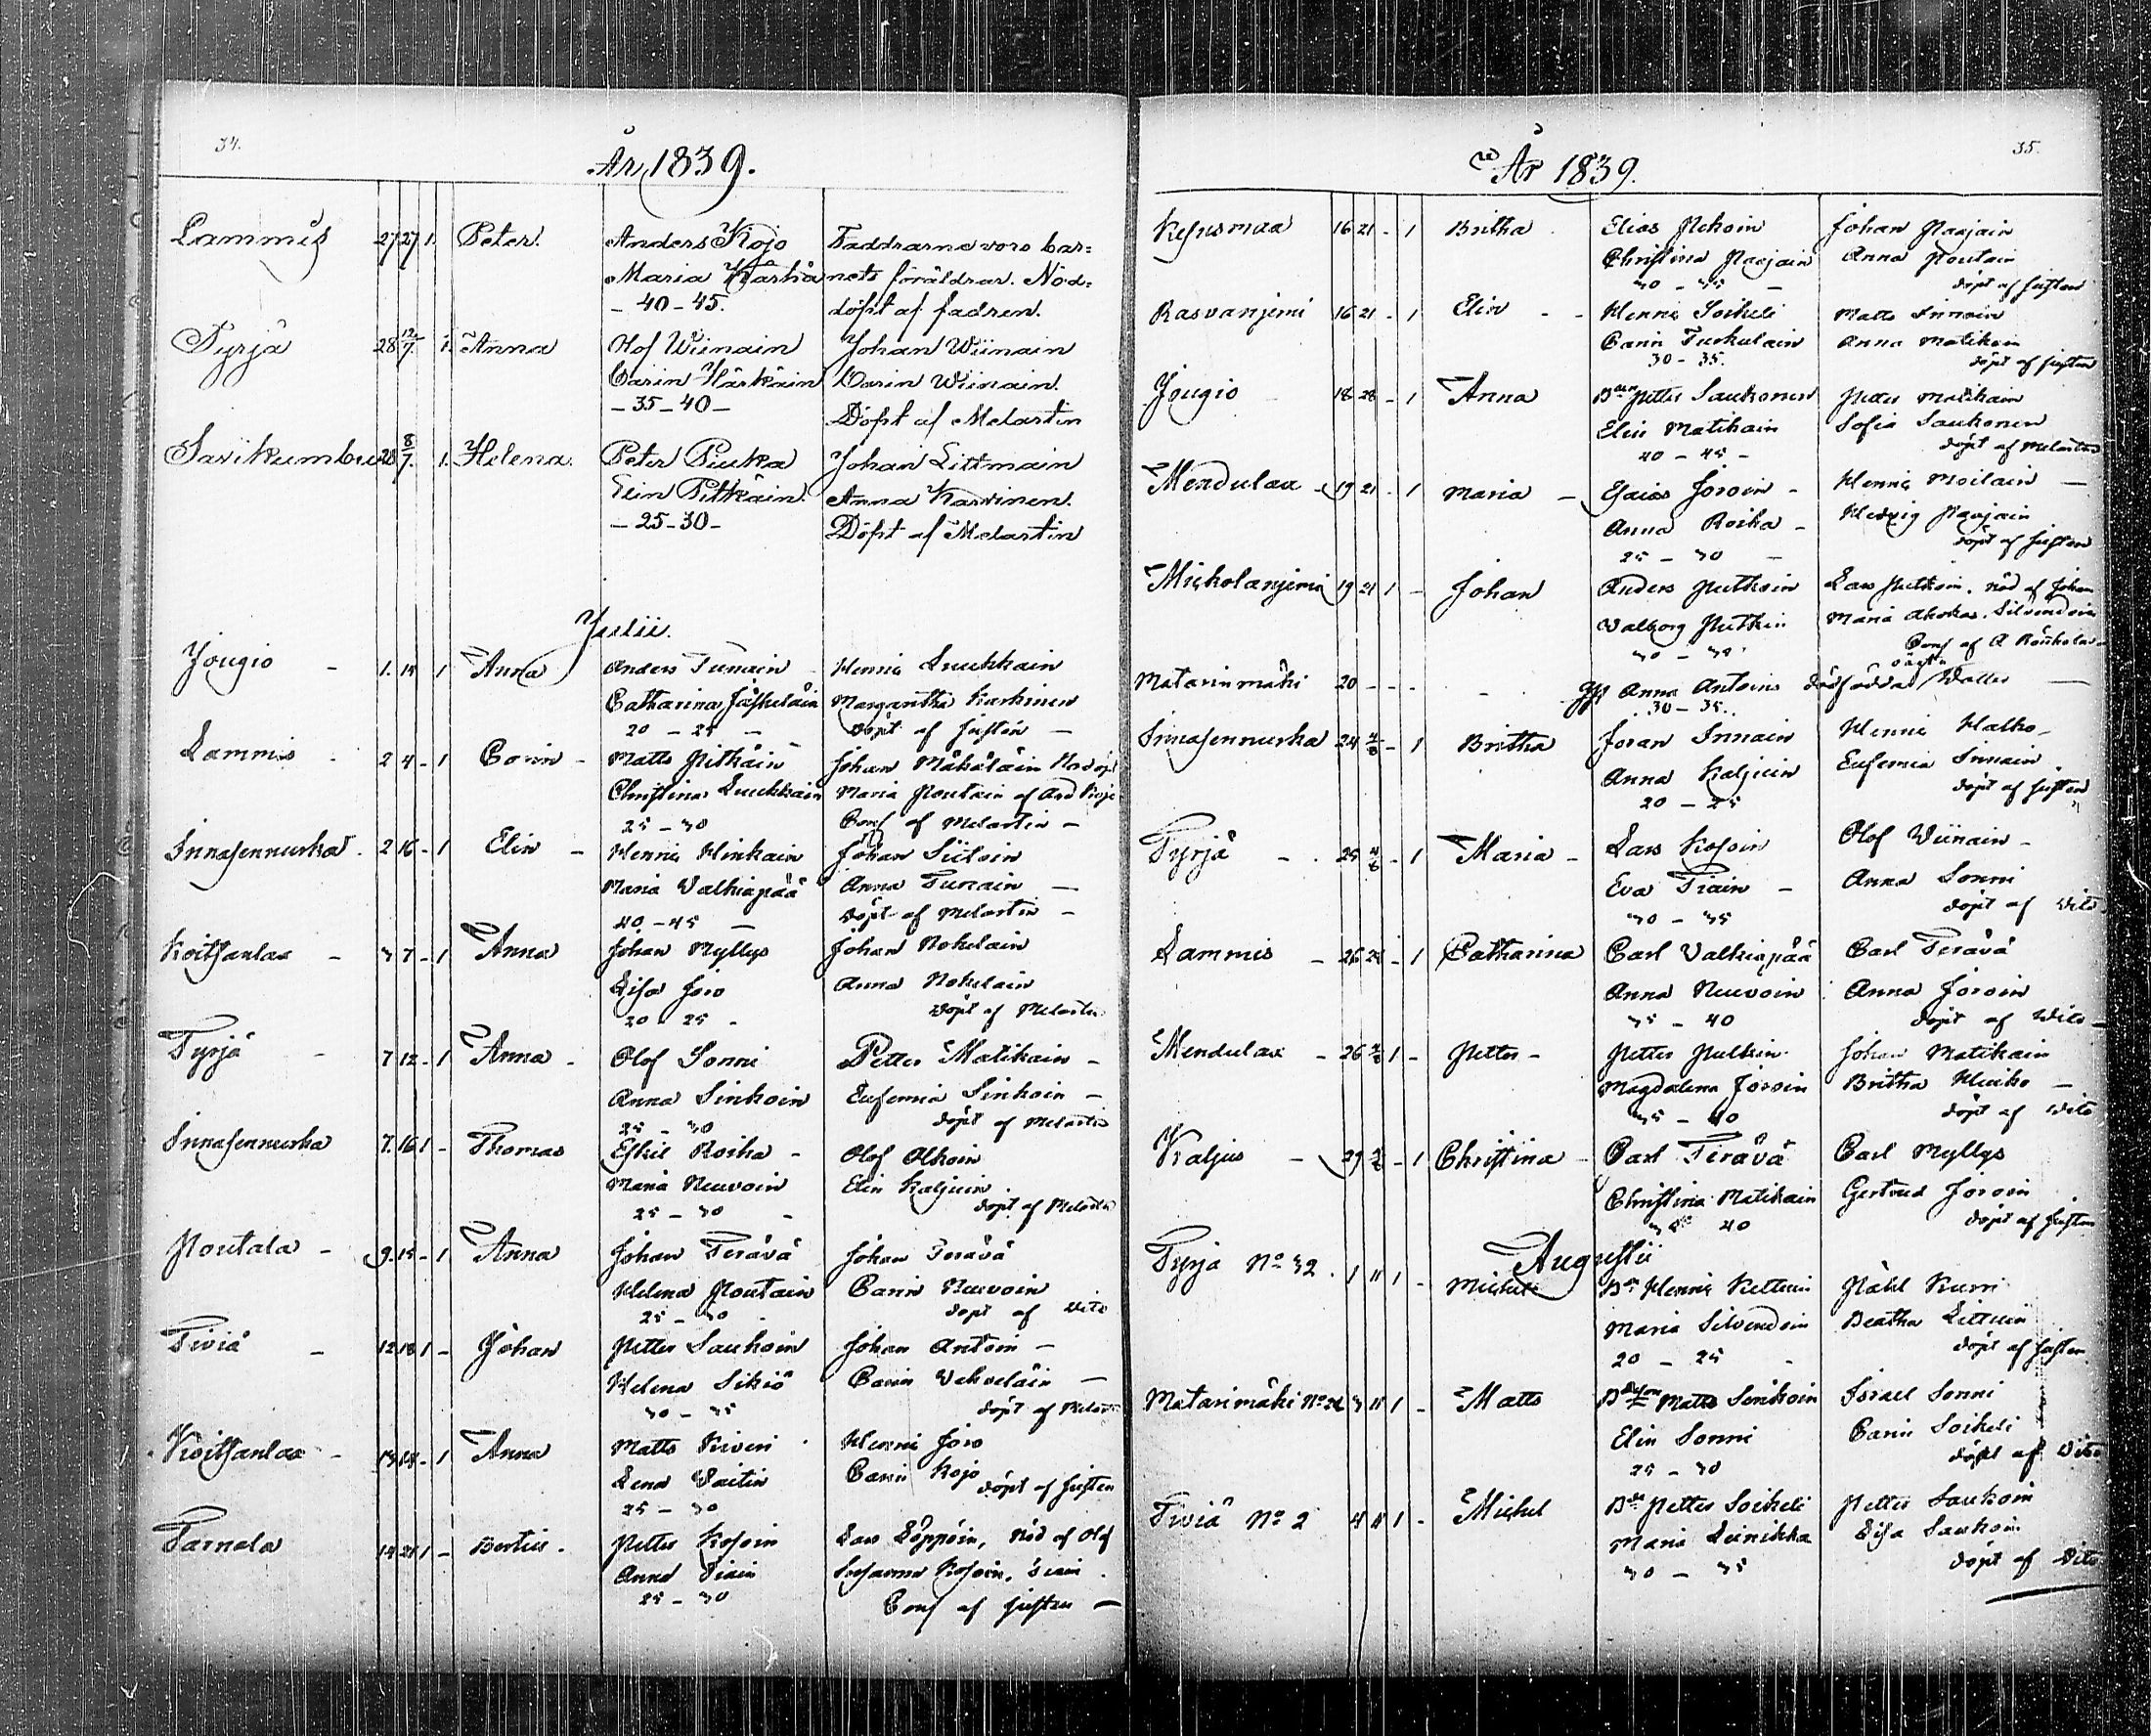 34.
År 1839.
Lammis 27 27/7 1. Peter. Anders Kojo Faddrarne voro bar=
Maria Kärkä nets föräldrar. Nöd=
- 40 - 45. döpt af fadren.
Pyrjä 28 12/7. 1. Anna Olof Wiinain Johan Wiinain
Carin Härkäin Carin Wiinain.
- 35 - 40 - Döpt af Melartin
Sarikumbu 28 8/7. 1. Helena. Peter Piuka Johan Littmain
Elin Pitkäin. Anna Karvinen.
- 25 - 30 - Döpt af Melartin
Julii.
Jougio - 1. 14 1 Anna Anders Tunain Henric Luukkain
Catharina Jäskeläin Margaretha Karhinen
20 - 25 - döpt af Justén -
Lammis - 2 4 - 1 Carin - Matts Pitkäin Johan Mäkäläin Nöd döpt
Christina Luukkain Maria Poutain af And Kojo
25 - 30 Conf af Melartin -
Innasennurka. 2 16 - 1 Elin - Henric Hinkain Johan Siitoin
Maria Valkiapää Anna Tunain -
40 - 45 - döpt af Melartin -
Koitsanlax - 3 7 - 1 Anna Johan Myllys Johan Nokelain
Lisa Joro Anna Nokelain
20 - 25 - döpt af Melartin
Pyrjä - 7 12 - 1 Anna - Olof Sonni Petter Matikain -
Anna Sinkoin Eufemia Sinkoin -
25 - 30 döpt af Melartin
Innasennurka 7. 16 1 - Thomas Eskil Roiha - Olof Olkoin
Maria Neuvoin Elin Kaljuin
25 - 30 - döpt af Melartin
Poutala - 9. 15 - 1 Anna Johan Terävä Johan Terävä
Helena Poutain Carin Neuvoin
25 - 30 - döpt af dito
Tiviä - 12 18 1 - Johan Petter Saukoin Johan Antoin -
Helena Sikiö Carin Vehveläin -
30 - 35 döpt af Melartin
Koitsanlax - 13 14 - 1 Anna Matts Kiveri Henric Joro
Lena Vaitin Carin Kojo döpt af Justen
25 - 30
Parnala 14 21 1 - Bertil. Petter Kosoin Lars Löppöin, nöd af Olof
Anna Piain Susanna Kosoin, Piain
25 - 30 Conf af Justen -
35.
År 1839.
Kesusmaa 16 21 - 1 Britha Elias Pekoin Johan Parjain
Christina Parjain Anna Poutain
30 - 35 - döpt af Justen
Rasvanjemi 16 21 - 1 Elin - - Henric Soikeli Matts Innain
Carin Turkulain Anna Matikain
30 - 35. döpt af Justen
Jougio - 18 28 - 1 Anna Petter Saukonen Petter Matikain
Elin Matikain Sofia Saukonen
40 - 45 - döpt af Melartin
Mendulax - 19 21 - 1 Maria - Esaias Joroin - Henric Moilain -
Anna Roiha - Hedvig Parjain
25 - 30 - döpt af Justen
Mickolanjemi 19 21 1 - Johan Anders Putkoin Lars Putkoin. nöd af Johan
Valborg Putkin Maria Ahokas. Silvendoin
30 - 35 Conf af
Matarinmäki 20 - - - - Anna Antoins dödfödda Dotter -
30 - 35.
Innasennurka 24 4/8 - 1 Britha Joran Innain Henric Halko -
Anna Kaljuin Eufemia Innain
20 - 25 döpt af Justen
Pyrjä - . 25 4/8 - 1 Maria - Lars Kosoin Olof Viinain -
Eva Piain - Anna Sonni
30 - 35 döpt af dito
Lammis - 26 28 - 1 Catharina Carl Valkiapää Carl Terävä
Anna Neuvoin Anna Joroin
35 - 40 döpt af dito -
Mendulax - 26 1 - Petter - Petter Pulkin Johan Matikain
Magdalena Joroin Britha Huiko -
35 - 40 döpt af dito
Kaljus - 29 - 1 Christina Carl Terävä Carl Myllys
Christina Matikain Gertrud Joroin
35 40 döpt af Justen
Augustii
Pyrjä No 32. 1 11 1 - Michel Henric Kuttuin Påhl Kurri
Maria Silvendoin Beatha Littuin
20 - 25 - döpt af Justen
Matarimäki No 3 11 1 - Matts Matts Sinkoin Israel Sonni
Elin Sonni Carin Soikeli
25 - 30 döpt af dito
Tiviä No 2 4 11 1 - Michel Petter Soikeli Petter Saukoin
Maria Leinikka Lisa Saukoin
30 - 35 döpt af dito